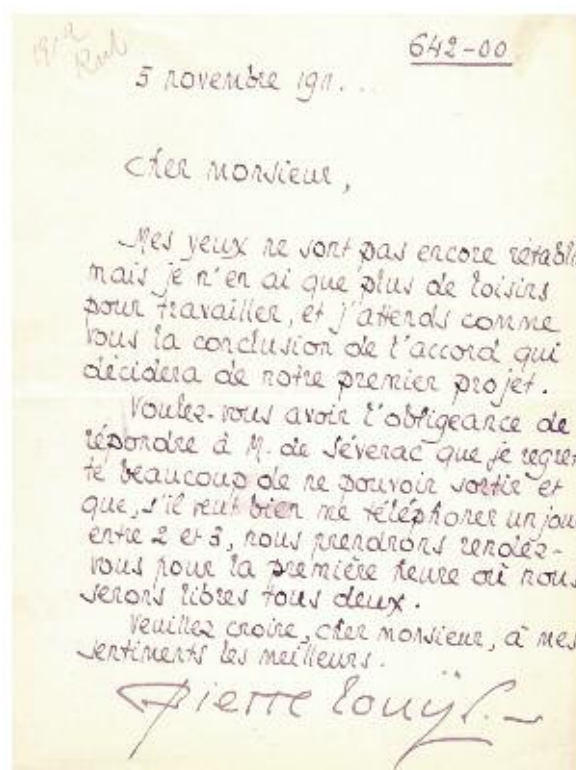 642-00
5 novembre 191...
Cher Monsieur,
Mes yeux ne sont pas encore rétabli
mais je n'en ai que plus de loisirs
pour travailler, et j'attends comme
vous la conclusion de l'accord qui
décidera de notre premier projet.
Voulez-vous avoir l'obligeance de
répondre à M. de Séverac que je regret
te beaucoup de ne pouvoir sortir et
que, s'il veut bien me téléphoner un jou
entre 2 et 3, nous prendrons rendez-
vous pour la première heure où nous
serons libres tous deux.
Veuillez croire, cher Monsieur, à mes
sentiments les meilleurs.
Pierre Louÿs